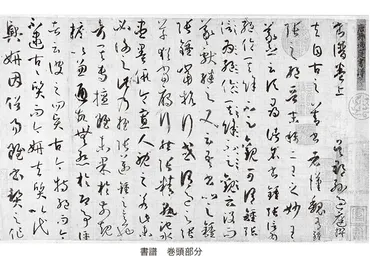 書譜卷上 吳郡孫過庭撰
夫自古之善書者漢魏有
鍾張之絕晉末稱二王之妙王
羲之云頃尋諸名書鍾張信為
絕倫其餘不足觀可謂鍾張
云沒而
羲獻繼之又云吾書比之
鍾張鍾當抗行或謂過之張
草猶當鴈行然張精熟池水
盡墨假令寡人耽之若此未
必謝之此乃推張邁鍾之意也
考其專擅雖未果於前規
摭以兼通故無慚於即事評
者云彼之四賢古今特絕而今
不逮古古質而今妍夫質以代
興妍因俗易雖書契之作
書譜　巻頭部分